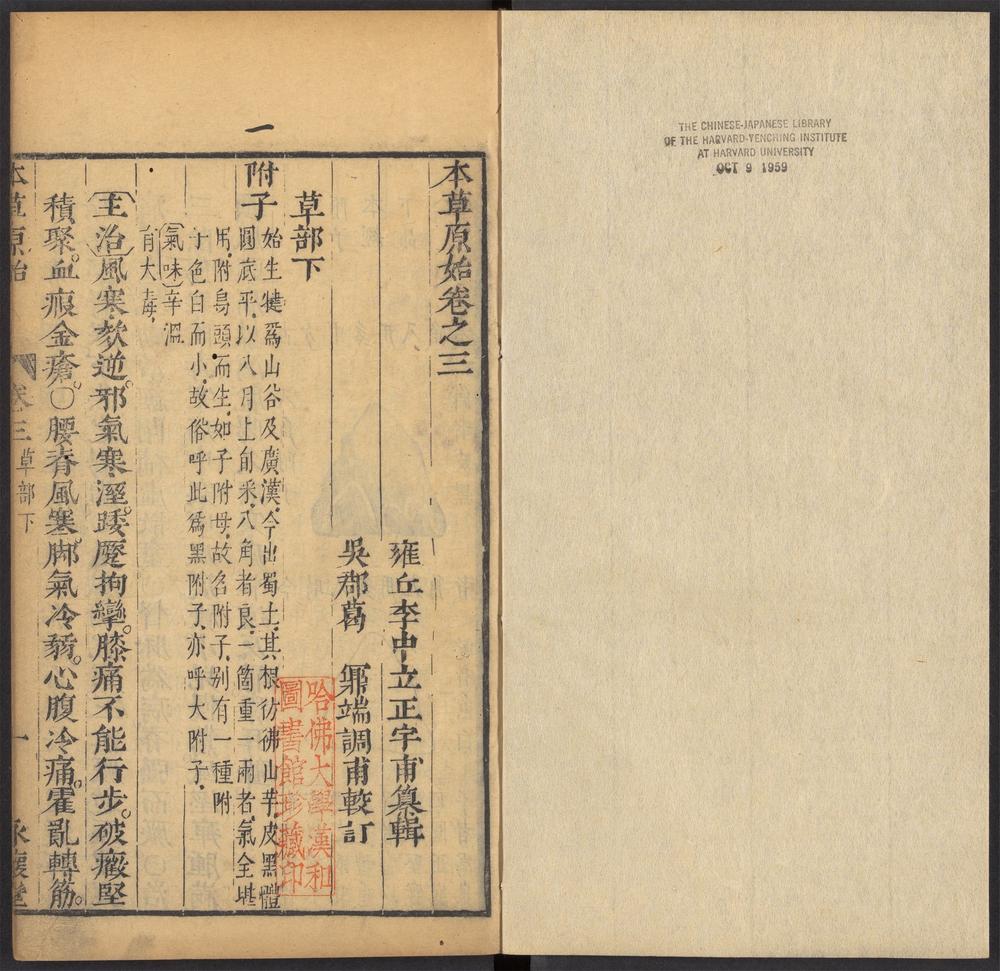 THE CHINESE-JAPANESE LIBRARY
OF THE HARVARD-YENCHING INSTITUTE
AT HARVARD UNIVERSITY
OCT 9 1959
一
本草原始卷之三
雍丘李中立正宇甫纂輯
吳郡葛鼐端調甫較訂
草部下
附子
始生犍爲山谷及廣漢今出蜀土其根彷彿山芋皮黑體
圓底平以八月上旬采八角者良一箇重一兩者氣全堪
用附烏頭而生如子附母故名附子别有一種附
子色白而小故俗呼此爲黑附子亦呼大附子
氣味辛溫
有大毒
主治風寒欬逆邪氣寒溼踒躄拘攣膝痛不能行步破癥堅
積聚血瘕金瘡〇腰脊風寒脚氣冷弱心腹冷痛霍亂轉筋
本草原始 卷三 草部下 一 永懷堂
哈佛大學漢和
圖書館珍藏印